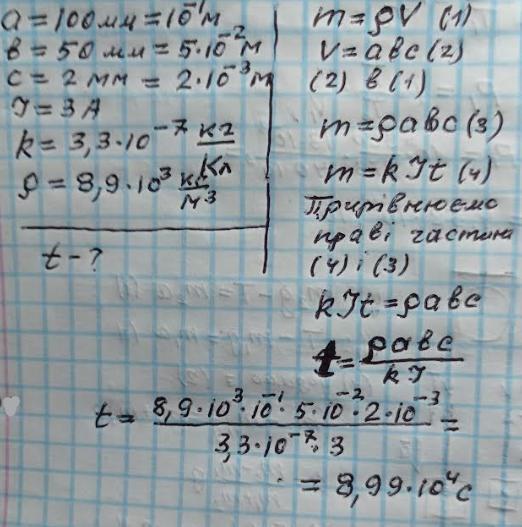 a = 100мм = 10⁻¹м
в = 50 мм = 5·10⁻² м
c = 2 мм = 2·10⁻³ м
I = 3 A
k = 3,3·10⁻⁷ кг/Кл
ρ = 8,9·10³ кг/м³
t - ?
m = ρV (1)
V = aвc (2)
(2) в (1)
m = ρaвc (3)
m = kIt (4)
Прирівнюємо
праві частини
(4) і (3)
kIt = ρaвc
t = ρaвc / kI
t = 8,9·10³·10⁻¹·5·10⁻²·2·10⁻³ / 3,3·10⁻⁷·3 =
= 8,99·10⁴ c